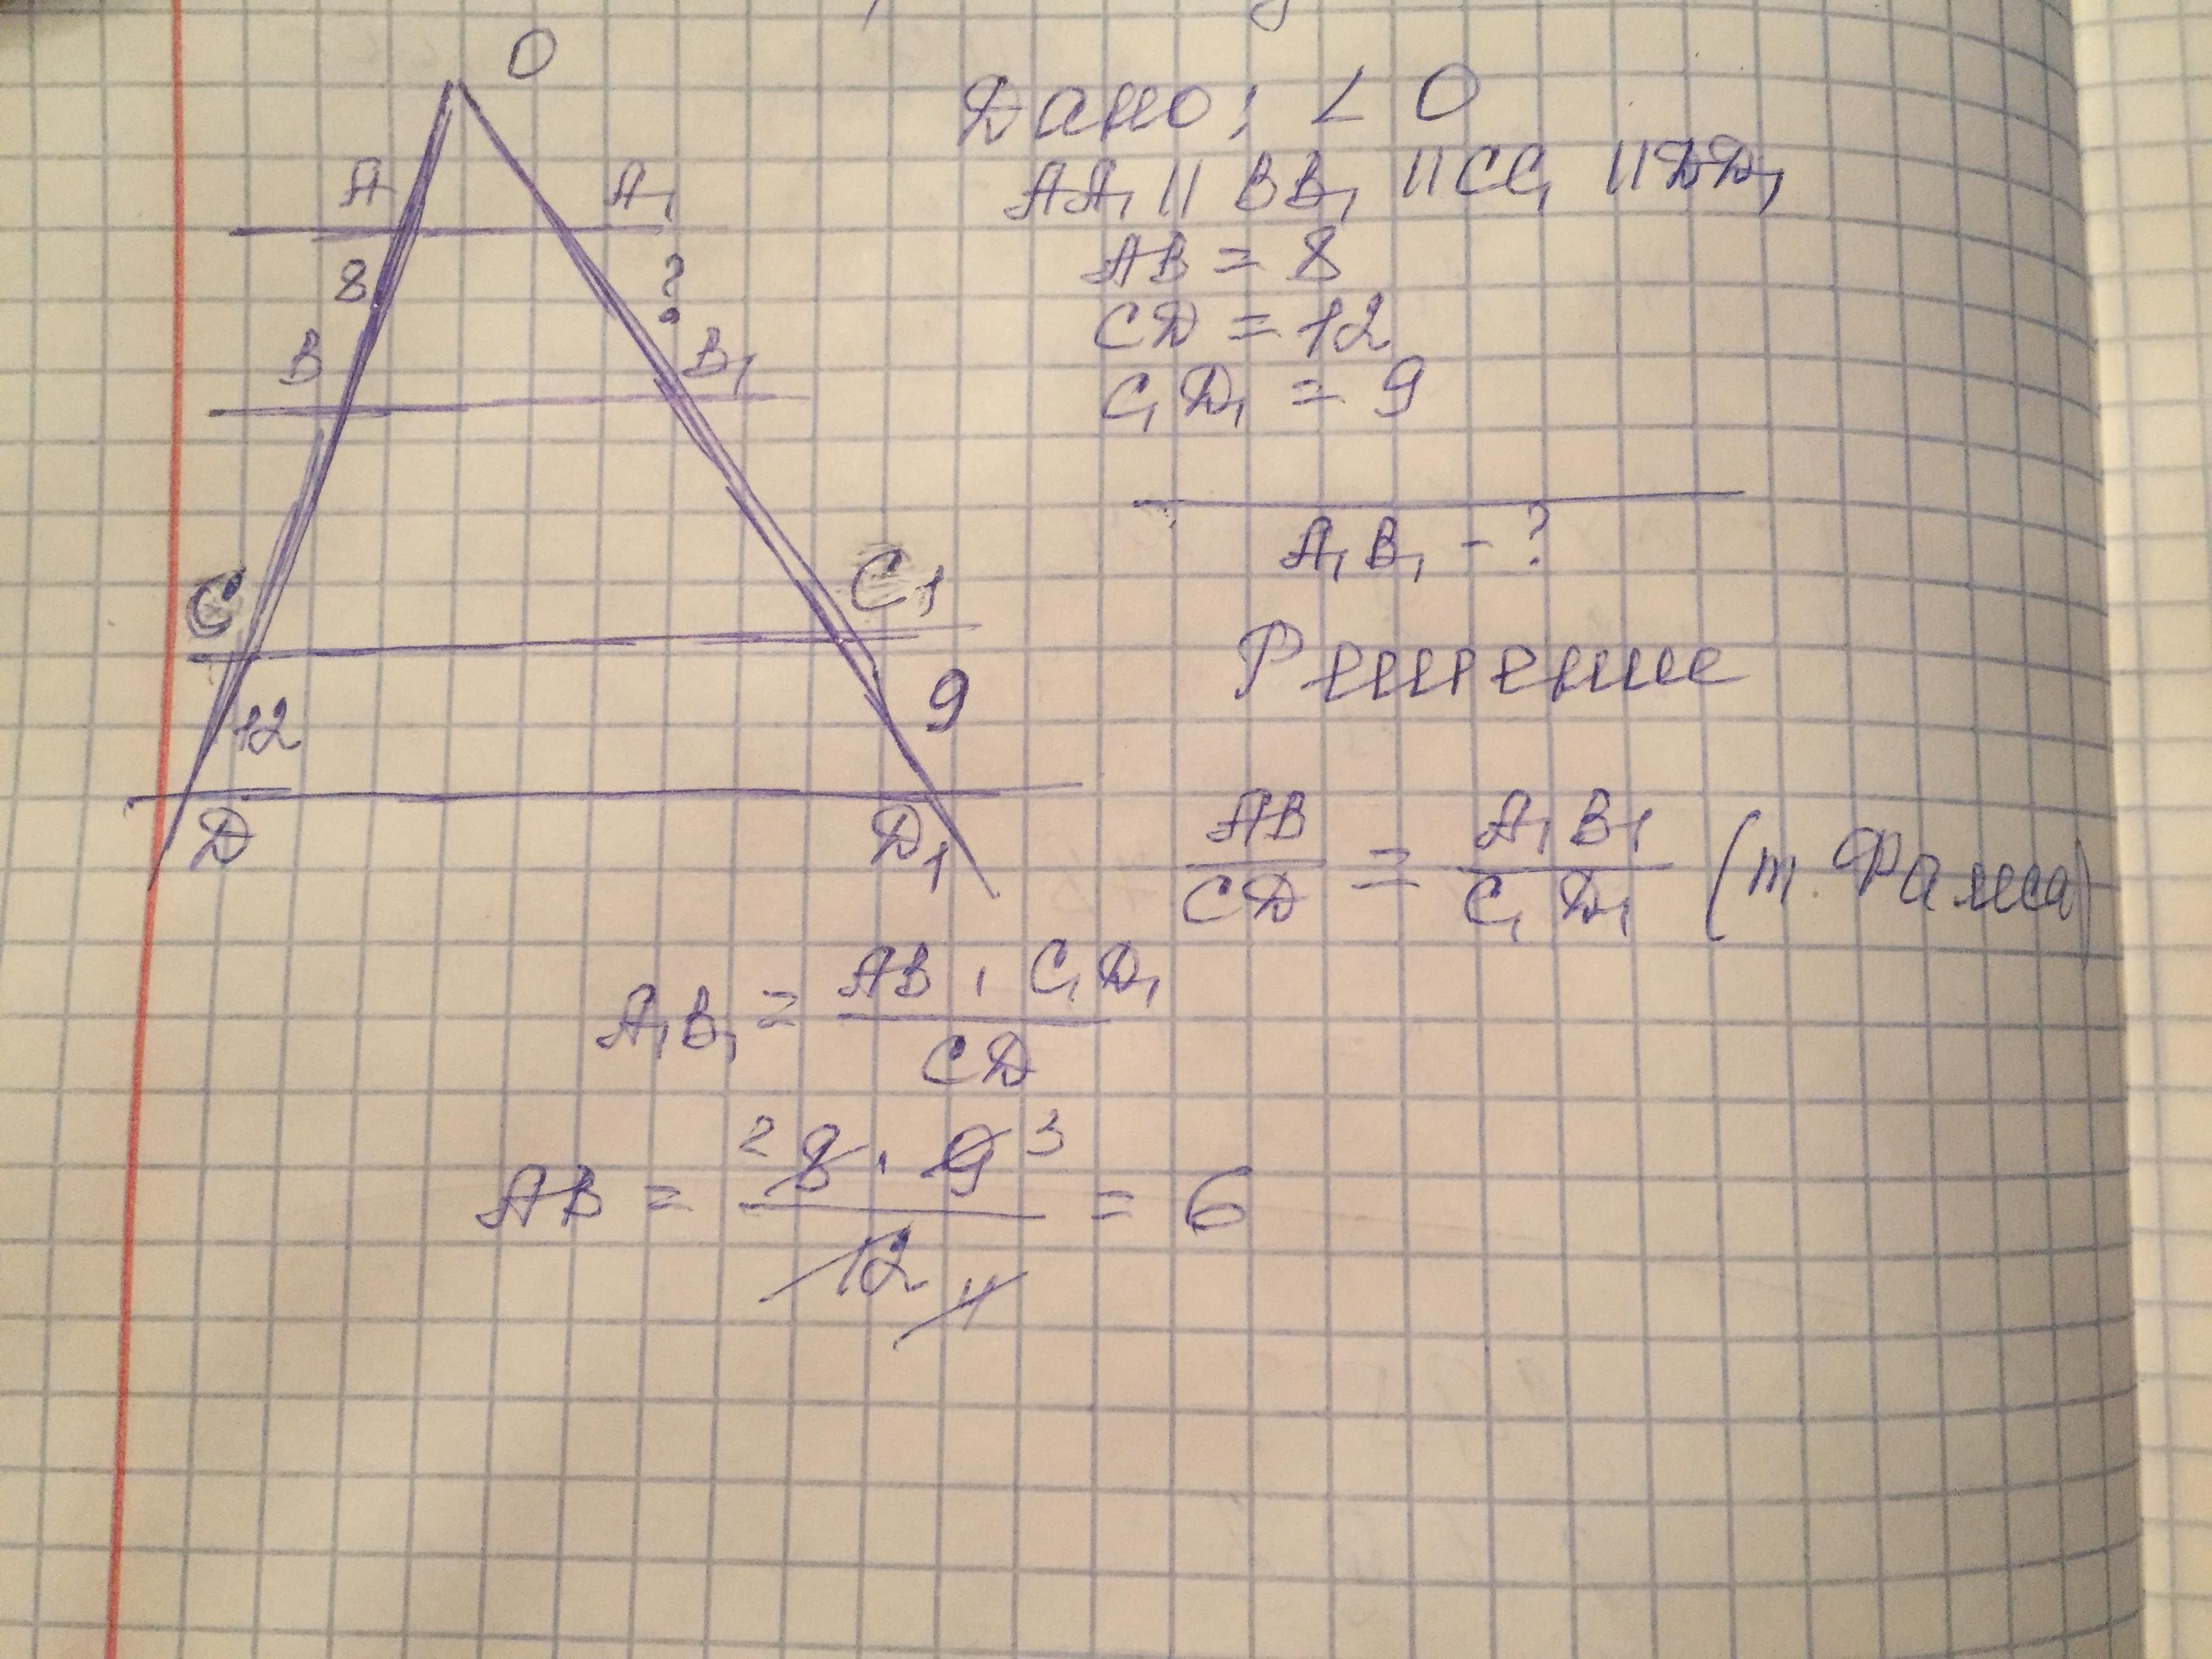 O
A A₁
8 ?
B B₁
C C₁
12 9
D D₁
Дано: ∠ O
AA₁ || BB₁ || CC₁ || DD₁
AB = 8
CD = 12
C₁D₁ = 9
A₁B₁ - ?
Решение
AB/CD = A₁B₁/C₁D₁ (т. Фалеса)
A₁B₁ = AB · C₁D₁ / CD
AB = ² 8 · 9 ³ / 12 = 6